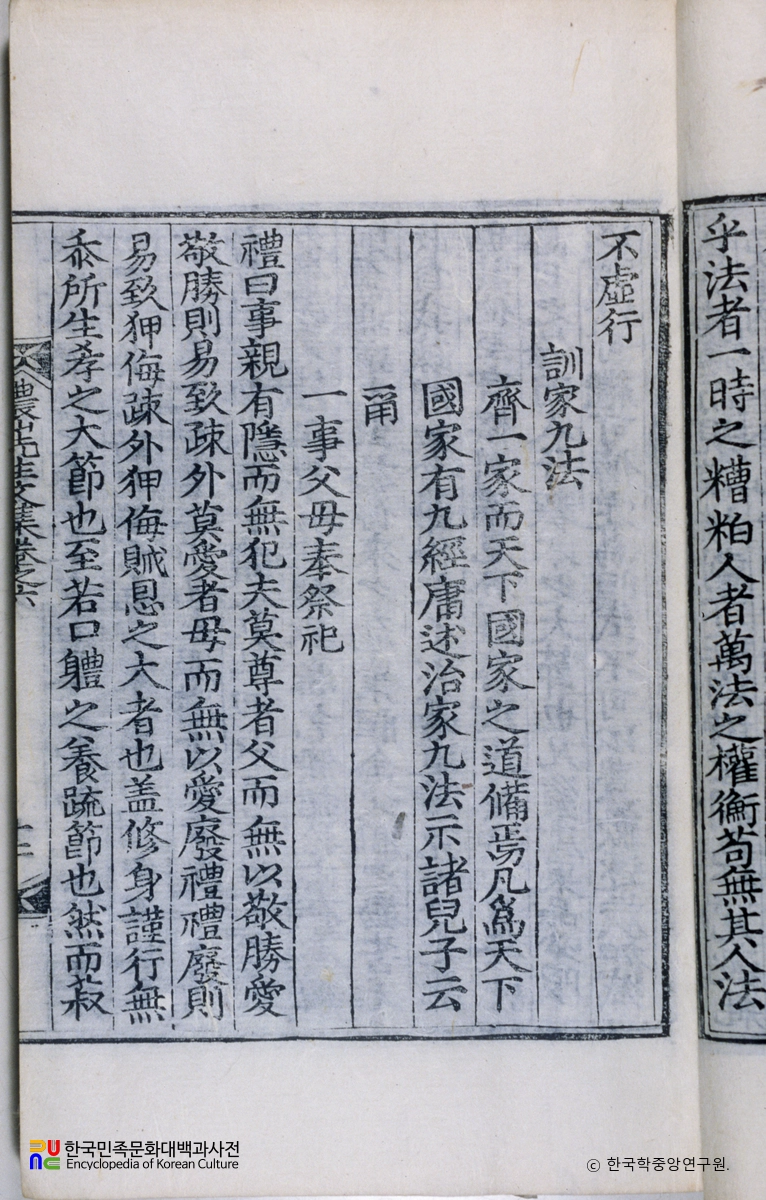 乎法者一時之糟粕人者萬法之權衡苟無其人法
不虛行
訓家九法
齊一家而天下國家之道備焉凡爲天下
國家有九經庸述治家九法示諸兒子云
爾
一事父母奉祭祀
禮曰事親有隱而無犯夫莫尊者父而無以敬勝愛
敬勝則易致疎外莫愛者母而無以愛廢禮禮廢則
易致狎侮疎外狎侮賊恩之大者也盖修身謹行無
忝所生孝之大節也至若口軆之養疏節也然而菽
先生文集卷之六
한국민족문화대백과사전
Encyclopedia of Korean Culture
© 한국학중앙연구원.